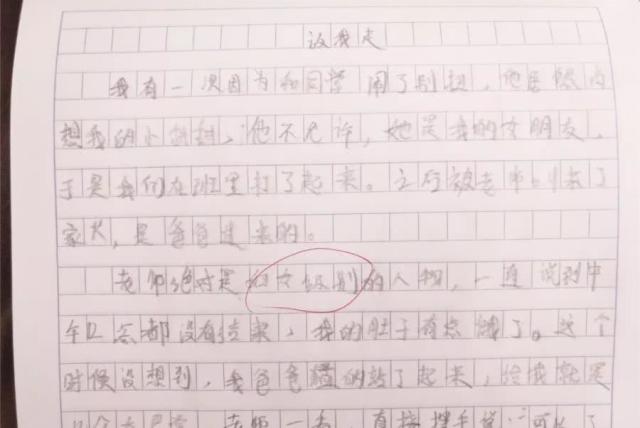 让我走
我有一次因为和同学闹了别扭，他居然
想我的小姐姐、他不允许，她是我的女朋友，
于是我们在班里打了起来。之后被老师叫来了
家长，是爸爸过来的。
老师绝对是级别的人物，一直说到中
午12点都没有结束，我的肚子有点饿了。这个
时候没想到，我爸爸猛的站了起来，给我就是
个大巴掌，老师一看，直接摆手说：“可以了